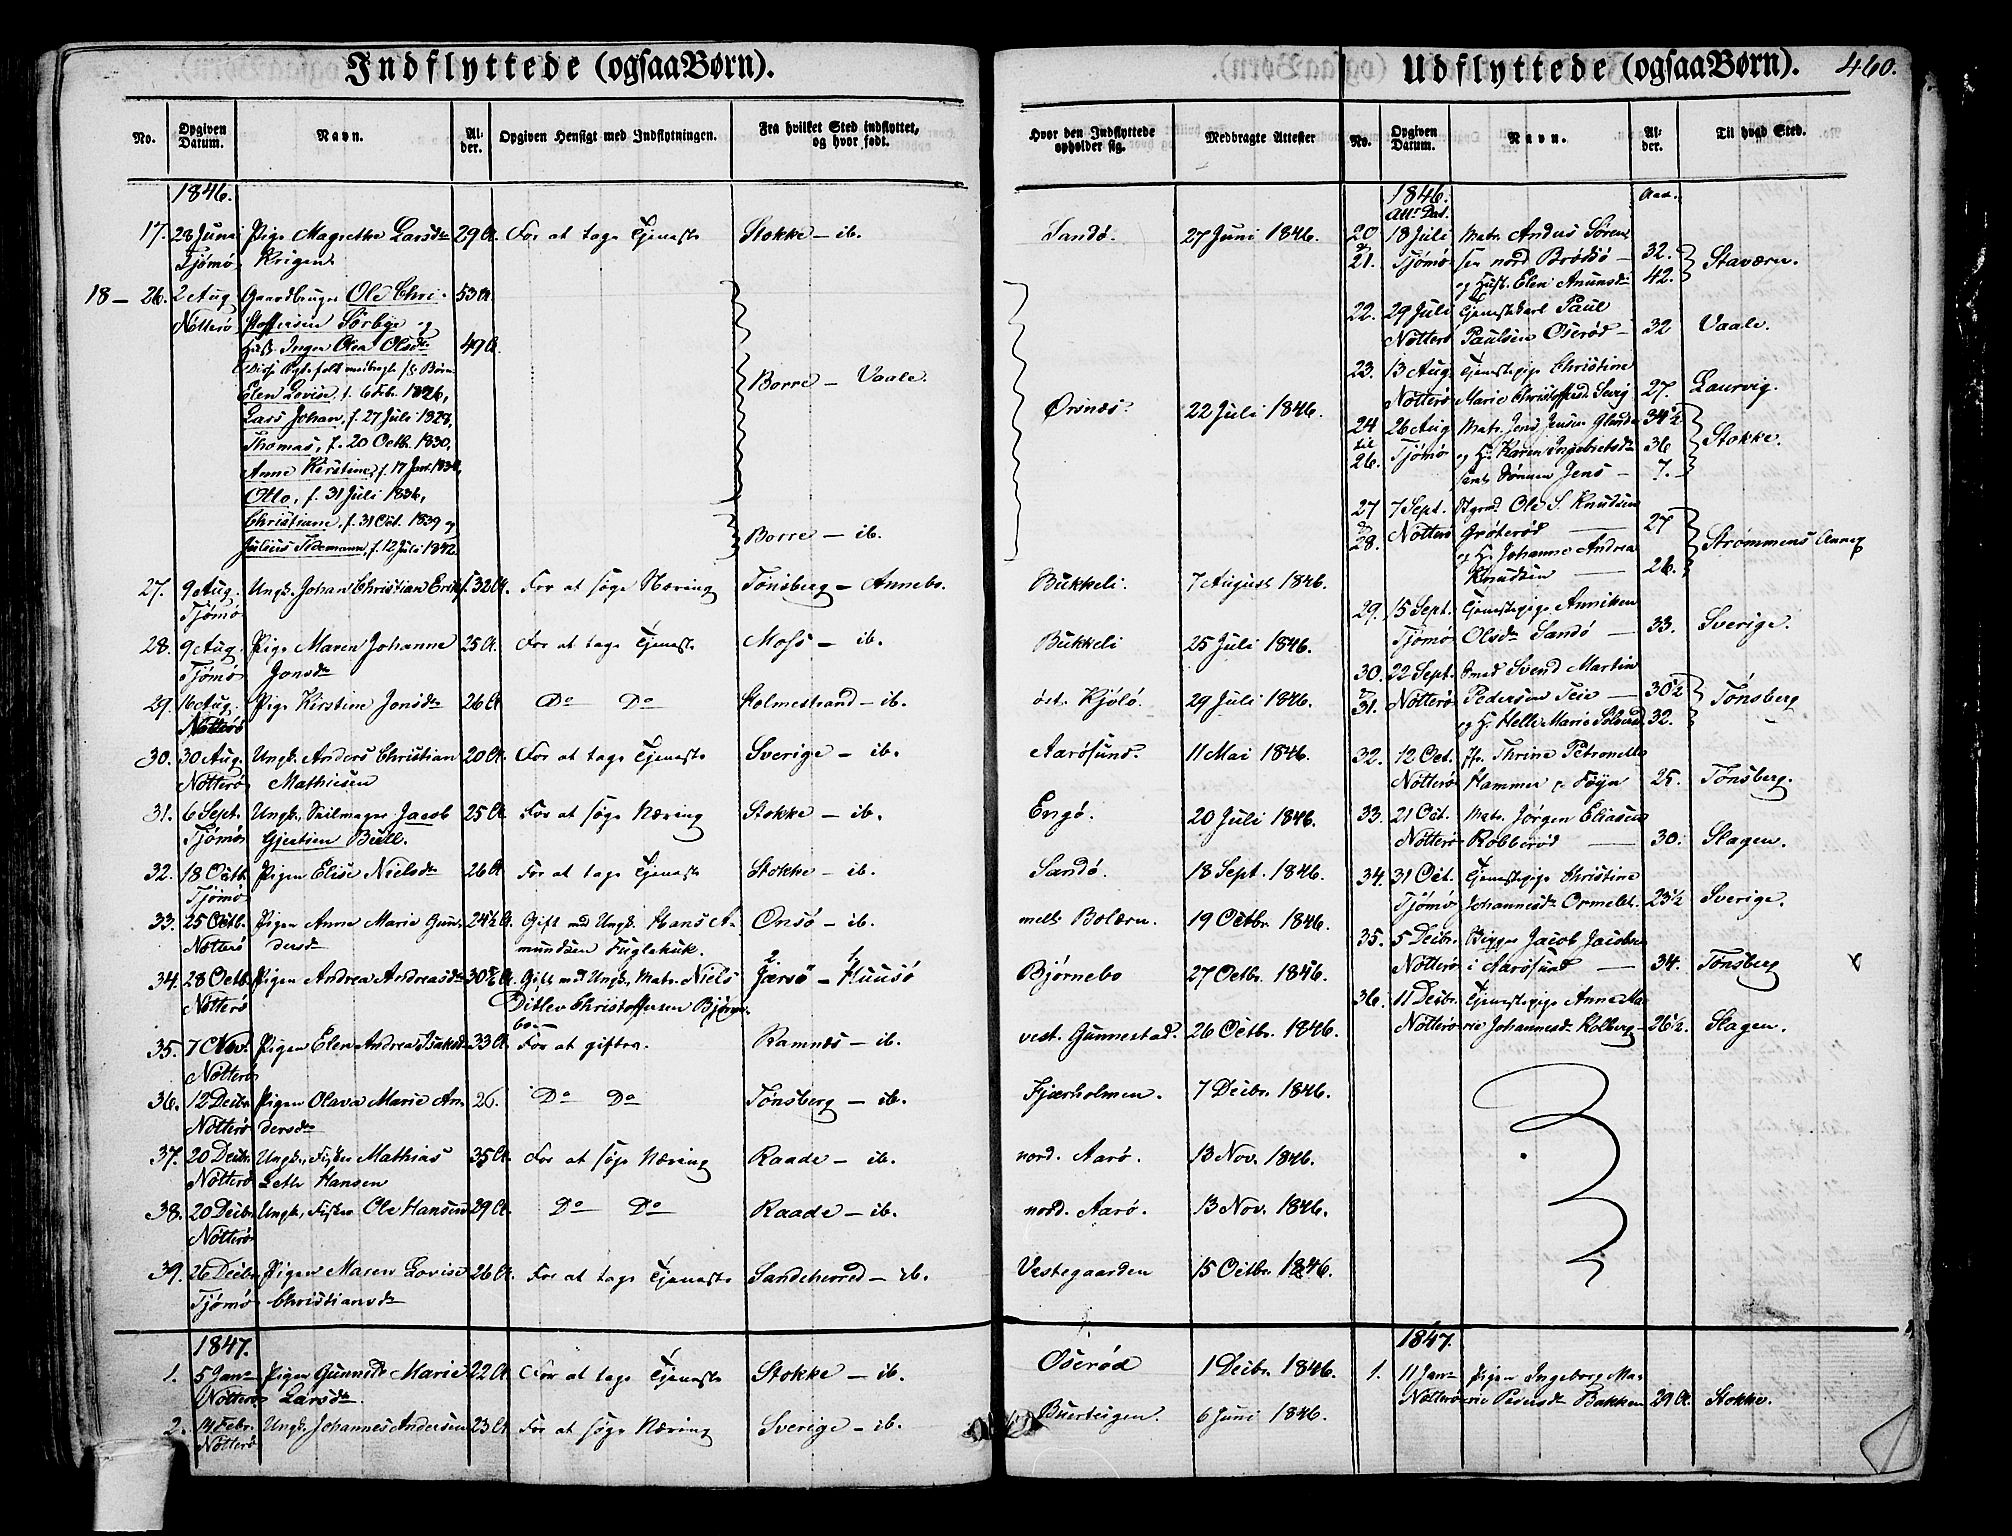 Indflyttede (ogsaa Børn).
No. Opgiven Datum. Navn. Alder. Opgiven Hensigt med Indflytningen. Fra hvilket Sted indflyttet, og hvor født. Hvor den Indflyttede opholder sig. Medbragte Attester
1846.
17. 28 Juni Pige Magrethe Larsdr 29 A. For at tage Tjeneste Stokke – ib. Sandø. 27 Juni 1846.
Tjømø Krigen
18 – 26. 2 Aug Gaardbruger Ole Chri- 53 A.
Nøtterø stoffersen Sørbye og
Hust. Inger Olea Olsdr. 49 A.
Børn
Elen Lovise, f. 6 Feb. 1826, Borre – Vaale.
Lars Johan, f. 27 Juli 1828, Ørsnæs. 22 Juli 1846.
Thomas, f. 20 Octb. 1830,
Anne Kirstine, f. 17 Jan. 1834,
Otto, f. 31 Juli 1836,
Christiane, f. 31 Oct. 1839 og
Julius Tidemann, f. 12 Juli 1842. Borre – ib.
27. 9 Aug. Ungk. Johan Christian Eriks. 32 A. For at søge Næring Tønsberg – Annebo. Bukkeli. 7 August 1846.
Tjømø
28. 9 Aug. Pige Maren Johanne 25 A. For at tage Tjeneste Moss – ib. Bukkeli 25 Juli 1846.
Tjømø Jonsdr
29. 16 Aug. Pige Kirstine Jonsdr 26 A. Do Do Holmestrand – ib. øst. Kjølø. 29 Juli 1846.
Nøtterø
30. 30 Aug. Ungk. Anders Christian 20 A. For at tage Tjeneste Sverige – ib. Aarøsund. 11 Mai 1846.
Nøtterø Mathiesen
31. 6 Sept. Ungk. Seilmager Jacob 25 A. For at søge Næring Stokke – ib. Engø. 20 Juli 1846.
Tjømø Gjertsen Bull.
32. 18 Octb. Pigen Elise Nielsdr 26 A. For at tage Tjeneste Stokke – ib. Sandø. 18 Sept. 1846.
Tjømø
33. 25 Octb. Pigen Anne Marie Gun- 24½ A. Gift med Ungk. Hans A- Onsø – ib. mell. Bolærn. 19 Octbr. 1846.
Nøtterø dersdr mundsen Fuglehuk.
34. 28 Octb. Pigen Andrea Andreasdr 30½ A. Gift med Ungk. Matr. Niels Jærsø – Huusø Bjørnebo 27 Octbr. 1846.
Nøtterø Ditlev Christoffersen Bjørne-
bo
35. 7 Nov. Pigen Elen Andrea Isaksdr 33 A. For at giftes. Ramnæs – ib. vest. Gunnestad. 26 Octbr. 1846.
Nøtterø
36. 12 Decbr. Pigen Olava Marie An- 26. Do Do Tønsberg – ib. Fjærholmen. 7 Decbr. 1846.
Nøtterø dersdr
37. 20 Decbr. Ungk., Fisker Mathias 35 A. For at søge Næring Raade – ib. nord. Aarø. 13 Nov. 1846.
Nøtterø Seth Hansen
38. 20 Decbr. Ungk., Fisker Ole Hansen 29 A. Do Do Raade – ib. nord. Aarø. 13 Nov. 1846.
Nøtterø
39. 26 Decbr. Pigen Maren Lovise 26 A. For at tage Tjeneste Sandeherred – ib. Vestegaarden 15 Octbr. 1846.
Tjømø Christiansdr
1847.
1. 5 Janr Pigen Gunnild Marie 22 A. For at tage Tjeneste Stokke – ib. Oserød 1 Decbr. 1846.
Nøtterø Larsdr.
2. 14 Febr. Ungk. Johannes Andersen 23 A. For at søge Næring Sverige – ib. Buerstigen. 6 Juni 1846.
Nøtterø
Udflyttede (ogsaa Børn). 460.
No. Opgiven Datum. Navn. Alder. Til hvad Sted.
1846. Aar.
Att. Dat.
20 18 Juli Matr. Andus Søren-
21. Tjømø sen nord. Brøtsø – 32. Staværn.
og Hust. Elen Amundsdr 42.
22. 29 Juli Tjenestekarl Paul
Nøtterø Paulsen Oserød – 32 Vaale.
23. 13 Aug. Tjenestepige Christine
Nøtterø Marie Christoffersd. 27. Laurvig.
24 26 Aug Matr. Jens Jensen 34½
til Tjømø og H. Karen Ingebretsdr 36 Stokke.
26. samt Sønnen Jens – 7.
27 7 Sept. Ole S. Knudsen
28. Nøtterø Grøterød – 27 Strømmens Annex
og H. Johanne Andrea
Knudsen – 26.
29. 15 Sept. Tjenestepige Anniken
Tjømø Olsdr Sandø – 33. Sverige.
30. 22 Sept. Smed Svend Martin
31. Nøtterø Pedersen Teie – 30½ Tønsberg
og H. Helle Marie 32.
32. 12 Oct. Thrine Petronelle
Nøtterø Hammer f. Føyn 25. Tønsberg.
33. 21 Oct. Matr. Jørgen Eliasen
Nøtterø Robberød – 30. Slagen.
34. 31 Oct. Tjenestepige Christine
Tjømø Johannesdr Ormelet. 23½ Sverige.
35. 5 Decbr. Bygger Jacob Jacobsen
Nøtterø i Aarøsund – 34. Tønsberg
36. 11 Decbr. Tjenestepige Anne Ma-
Nøtterø rie Johannesdr Kolberg – 26½. Slagen.
1847.
1. 11 Janr Pigen Ingeborg Ma-
Nøtterø rie Pedersdr Bakken 29 A. Stokke.